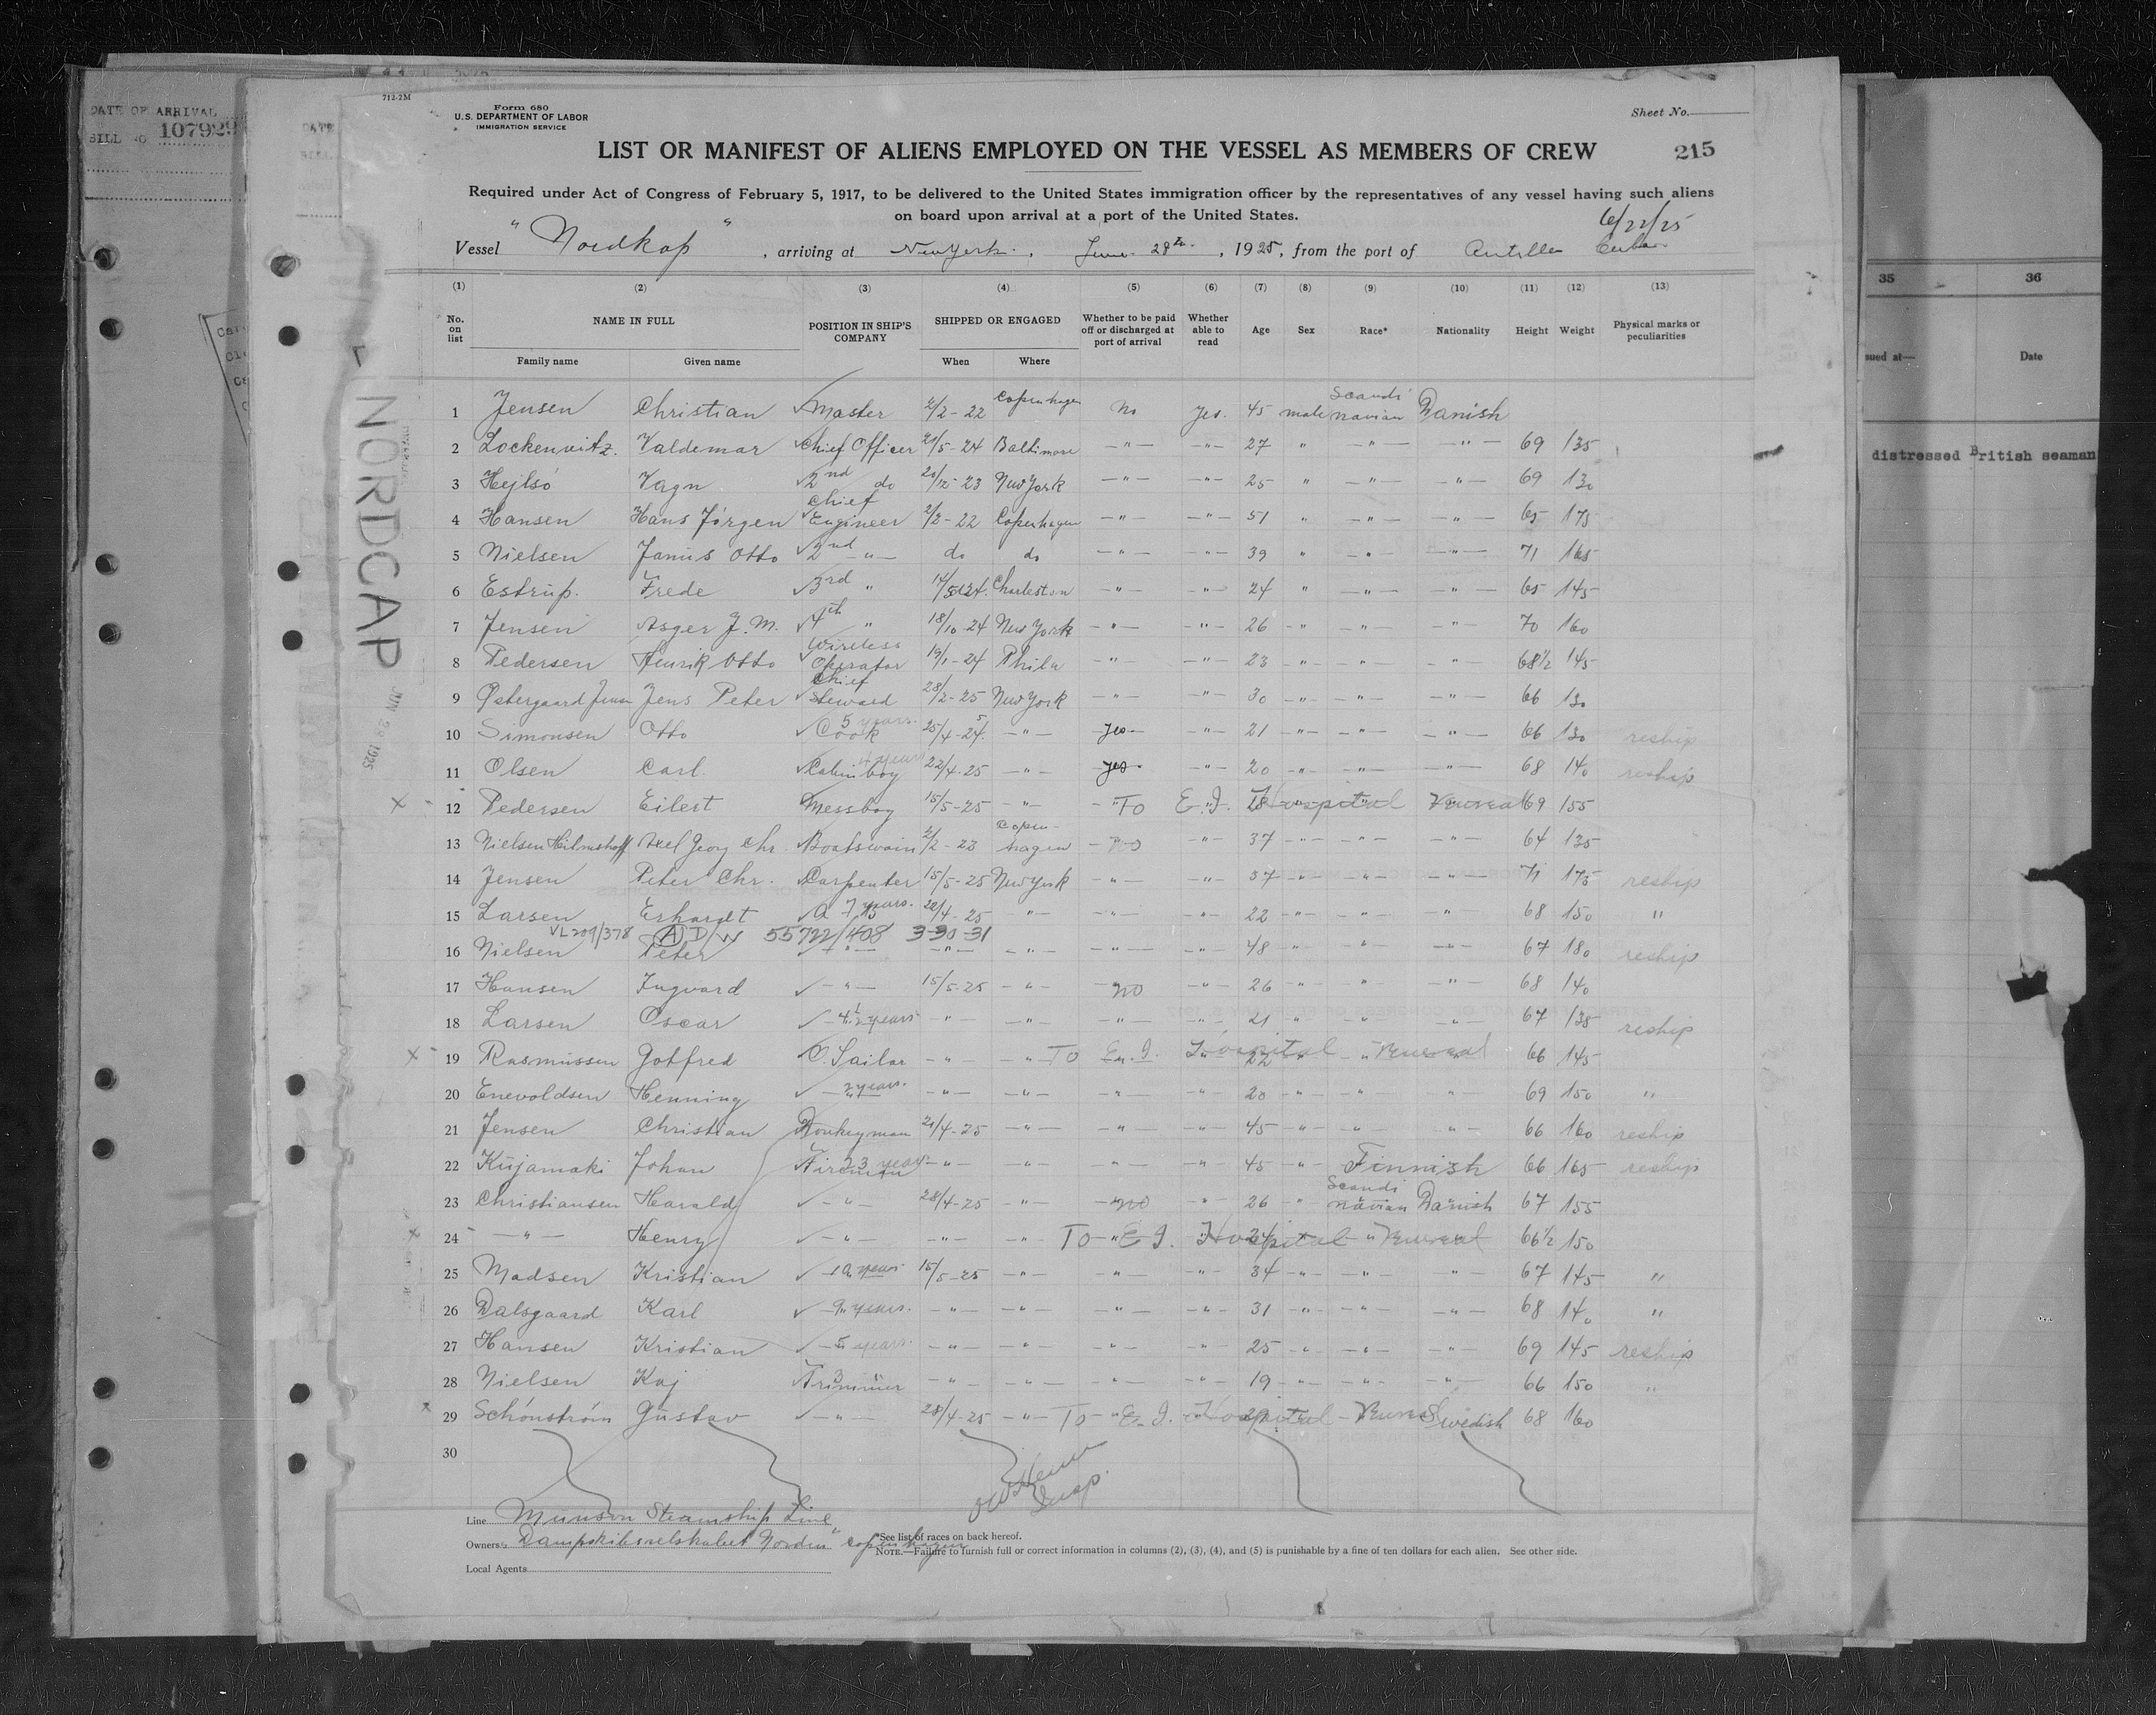 712-2M
Form 680
U.S. DEPARTMENT OF LABOR
IMMIGRATION SERVICE
Sheet No.
DATE OF ARRIVAL
BILL NO 107929
LIST OR MANIFEST OF ALIENS EMPLOYED ON THE VESSEL AS MEMBERS OF CREW
215
Required under Act of Congress of February 5, 1917, to be delivered to the United States immigration officer by the representatives of any vessel having such aliens
on board upon arrival at a port of the United States.
6/22/25
Vessel "Nordkap", arriving at New York, June 28th, 1925, from the port of Antilla Cuba
(1) (2) (3) (4) (5) (6) (7) (8) (9) (10) (11) (12) (13)
No. on list NAME IN FULL POSITION IN SHIP'S COMPANY SHIPPED OR ENGAGED Whether to be paid off or discharged at port of arrival Whether able to read Age Sex Race* Nationality Height Weight Physical marks or peculiarities
Family name Given name When Where
35 36
sued at— Date
distressed British seaman
NORDCAP
JUN 28 1925
1 Jensen Christian Master 2/2-22 Copenhagen No yes. 45 male Scandinavian Danish
2 Lockenvitz. Valdemar Chief Officer 21/5-24 Baltimore -"- -"- 27 " -"- -"- 69 135
3 Hejlsó Vagn 2nd do 20/12-23 New York -"- -"- 25 " -"- -"- 69 130
4 Hansen Hans Jórgen Chief Engineer 2/2-22 Copenhagen -"- -"- 51 " -"- -"- 65 175
5 Nielsen Janus Otto 2nd -"- do do -"- -"- 39 " -"- -"- 71 165
6 Estrup. Frede 3rd " 14/5-24. Charleston -"- -"- 24 " -"- -"- 65 145
7 Jensen Asger J.M. 4th " 18/10-24 New York -"- -"- 26 -"- -"- -"- 70 160
8 Pedersen Henrik Otto Wireless Operator 19/1-24 Phila -"- -"- 23 -"- -"- -"- 68½ 145
9 Østergaard Jensen Jens Peter Chief Steward 28/2-25 New York -"- -"- 30 -"- -"- -"- 66 130
10 Simonsen Otto Cook 5 years. 25/4-25. -"- yes -"- 21 -"- -"- -"- 66 130 reship
11 Olsen Carl. Cabinboy 4 years 22/4-25 -"- yes -"- 20 -"- -"- -"- 68 140 reship
x 12 Pedersen Eilert Messboy 15/5-25 -"- To E.I. Hospital Venereal 69 155
13 Nielsen Axel Georg Chr. Boatswain 2/2-22 Copenhagen no -"- 37 -"- -"- -"- 64 135
14 Jensen Peter Chr. Carpenter 15/5-25 New York -"- -"- 37 -"- -"- -"- 71 175 reship
15 Larsen Erhardt 7 years. 22/4-25 -"- -"- -"- 22 -"- -"- -"- 68 150 "
VL 209/378 (A) D/W 55722/408 3-30-31
16 Nielsen Peter -"- -"- -"- -"- -"- 48 -"- -"- -"- 67 180 reship
17 Hansen Ingvard -"- 15/5-25 -"- no -"- 26 -"- -"- -"- 68 140
18 Larsen Oscar 4½ years -"- -"- -"- -"- 21 " -"- -"- 67 135 reship
x 19 Rasmussen Gotfred O. Sailor -"- -"- To E.I. Hospital 22 Venereal 66 145
20 Enevoldsen Henning 2 years. -"- -"- -"- -"- 20 -"- -"- -"- 69 150 "
21 Jensen Christian Donkeyman 21/4-25 -"- -"- -"- 45 -"- -"- -"- 66 160 reship
22 Kujamaki Johan Fireman 23 years -"- -"- -"- -"- 45 -"- Finnish 66 165 reship
23 Christiansen Harald -"- 28/4-25 -"- no -"- 26 " Scandinavian Danish 67 155
x 24 -"- Henry -"- -"- -"- To E.I. Hospital Venereal 66½ 150
25 Madsen Kristian years 15/5-25 -"- -"- -"- 34 -"- -"- -"- 67 145 "
26 Dalsgaard Karl 9 years. -"- -"- -"- -"- 31 -"- -"- -"- 68 140 "
27 Hansen Kristian 5 years. -"- -"- -"- -"- 25 -"- -"- -"- 69 145 reship
28 Nielsen Kaj Trimmer -"- -"- -"- -"- 19 -"- -"- -"- 66 150 "
x 29 Schónstróm Gustav -"- 28/4-25 -"- To E.I. Hospital Swedish 68 160
30
Line Munson Steamship Line
Owners Dampskibsselskabet Norden" Copenhagen
Local Agents
*See list of races on back hereof.
NOTE.—Failure to furnish full or correct information in columns (2), (3), (4), and (5) is punishable by a fine of ten dollars for each alien. See other side.